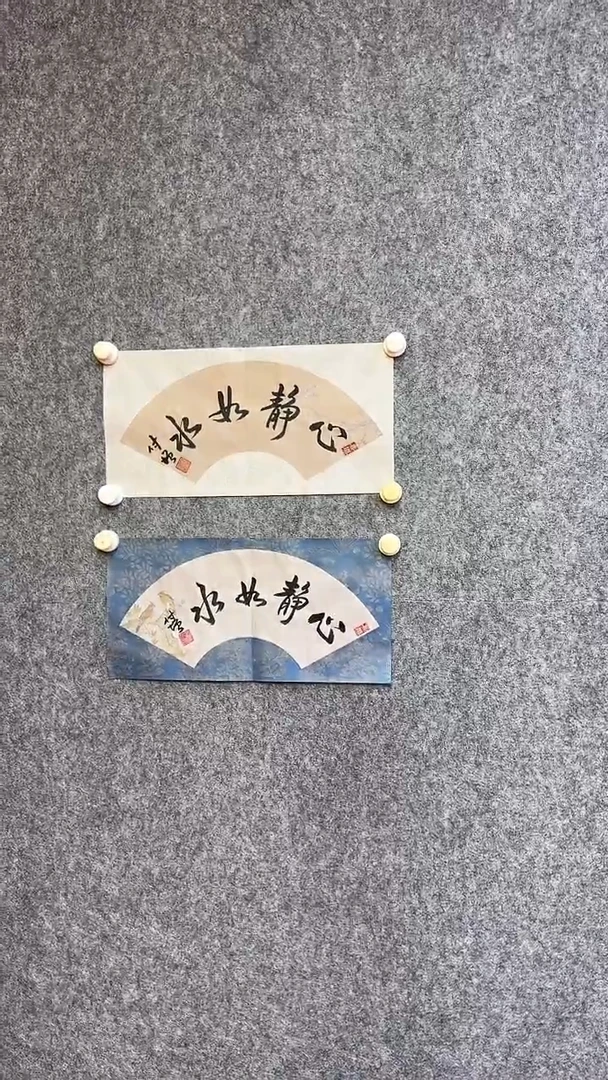 心静如水
心静如水